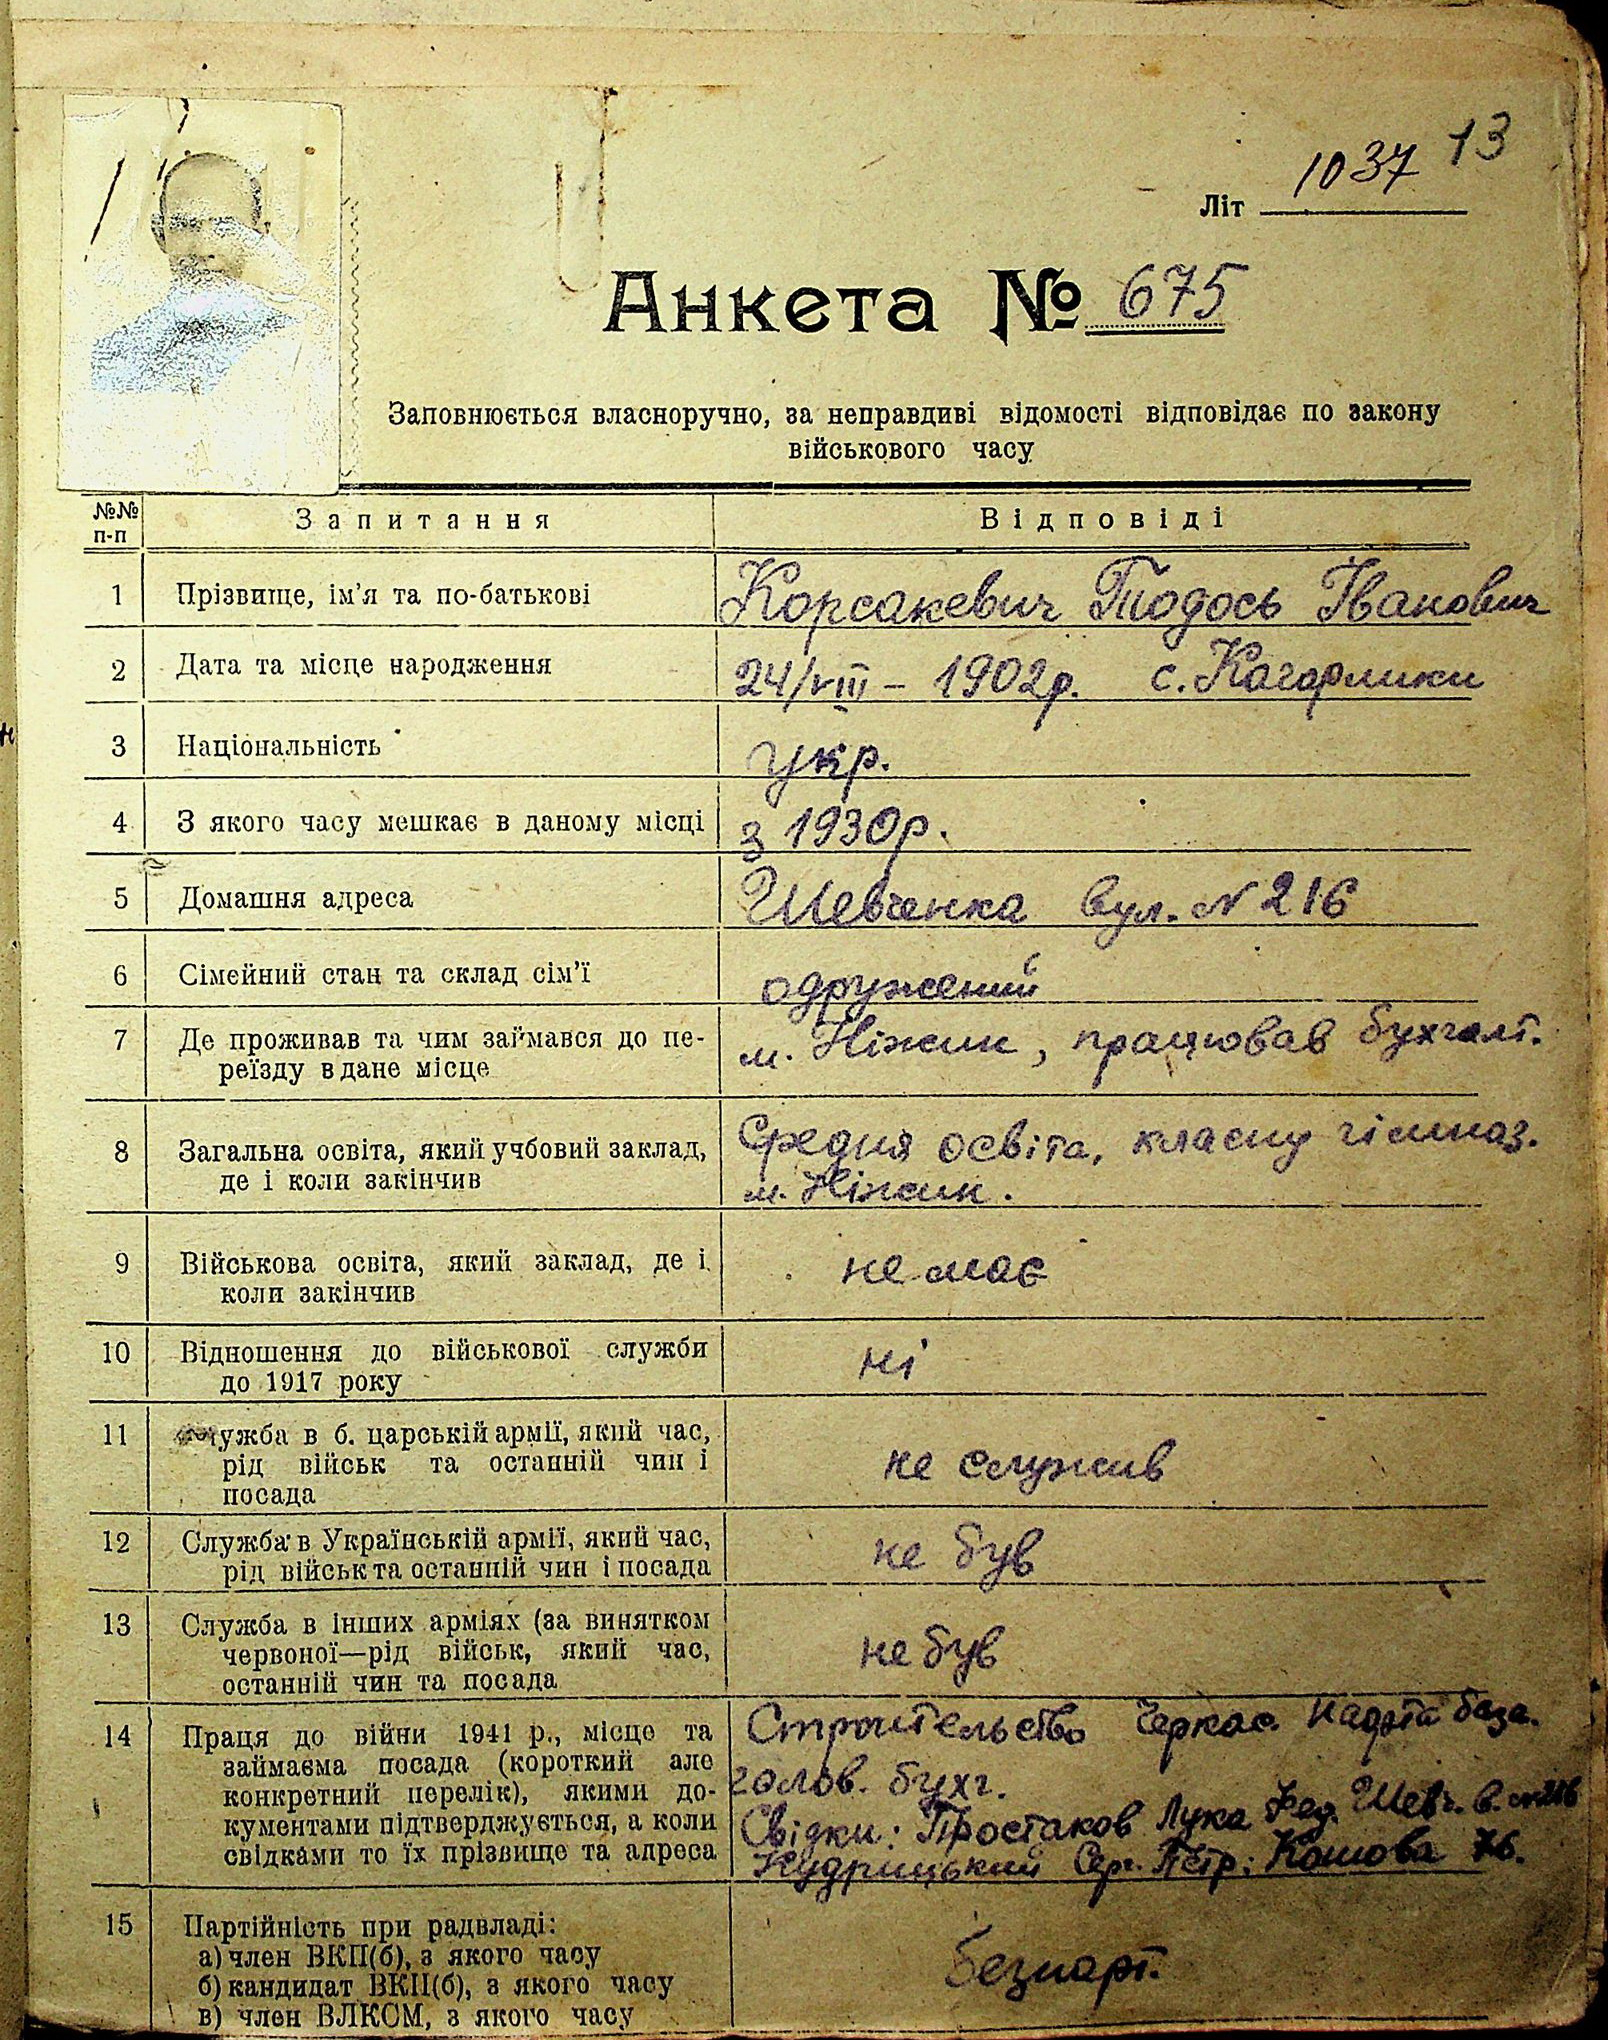 13
Літ 1037
Анкета № 675
Заповнюється власноручно, за неправдиві відомості відповідає по закону
військового часу
№№ п-п Запитання Відповіді
1 Прізвище, ім'я та по-батькові Корсакевич Тодось Іванович
2 Дата та місце народження 24/VIII – 1902р. с. Кагарлики
3 Національність укр.
4 З якого часу мешкає в даному місці з 1930р.
5 Домашня адреса Шевченка вул. № 216
6 Сімейний стан та склад сім'ї одружений
7 Де проживав та чим займався до пе- м. Ніжин, працював бухгалт.
реїзду в дане місце
8 Загальна освіта, який учбовий заклад, Средня освіта, класну гімназ.
де і коли закінчив м. Ніжин.
9 Військова освіта, який заклад, де і не має
коли закінчив
10 Відношення до військової служби ні
до 1917 року
11 ужба в б. царській армії, який час,
рід військ та останній чин і не служив
посада
12 Служба в Українській армії, який час, не був
рід військ та останній чин і посада
13 Служба в інших арміях (за винятком
червоної—рід військ, який час, не був
останній чин та посада
14 Праця до війни 1941 р., місце та Строительство Черкас. Надтабаза.
займаєма посада (короткий але голов. бухг.
конкретний перелік), якими до-
кументами підтверджується, а коли Свідки: Простаков Лука Фед. Шевч. в. № 216
свідками то їх прізвище та адреса Кудрицький Серг. Петр; Кошова 76.
15 Партійність при радвладі:
а) член ВКП(б), з якого часу безпарт.
б) кандидат ВКП(б), з якого часу
в) член ВЛКСМ, з якого часу